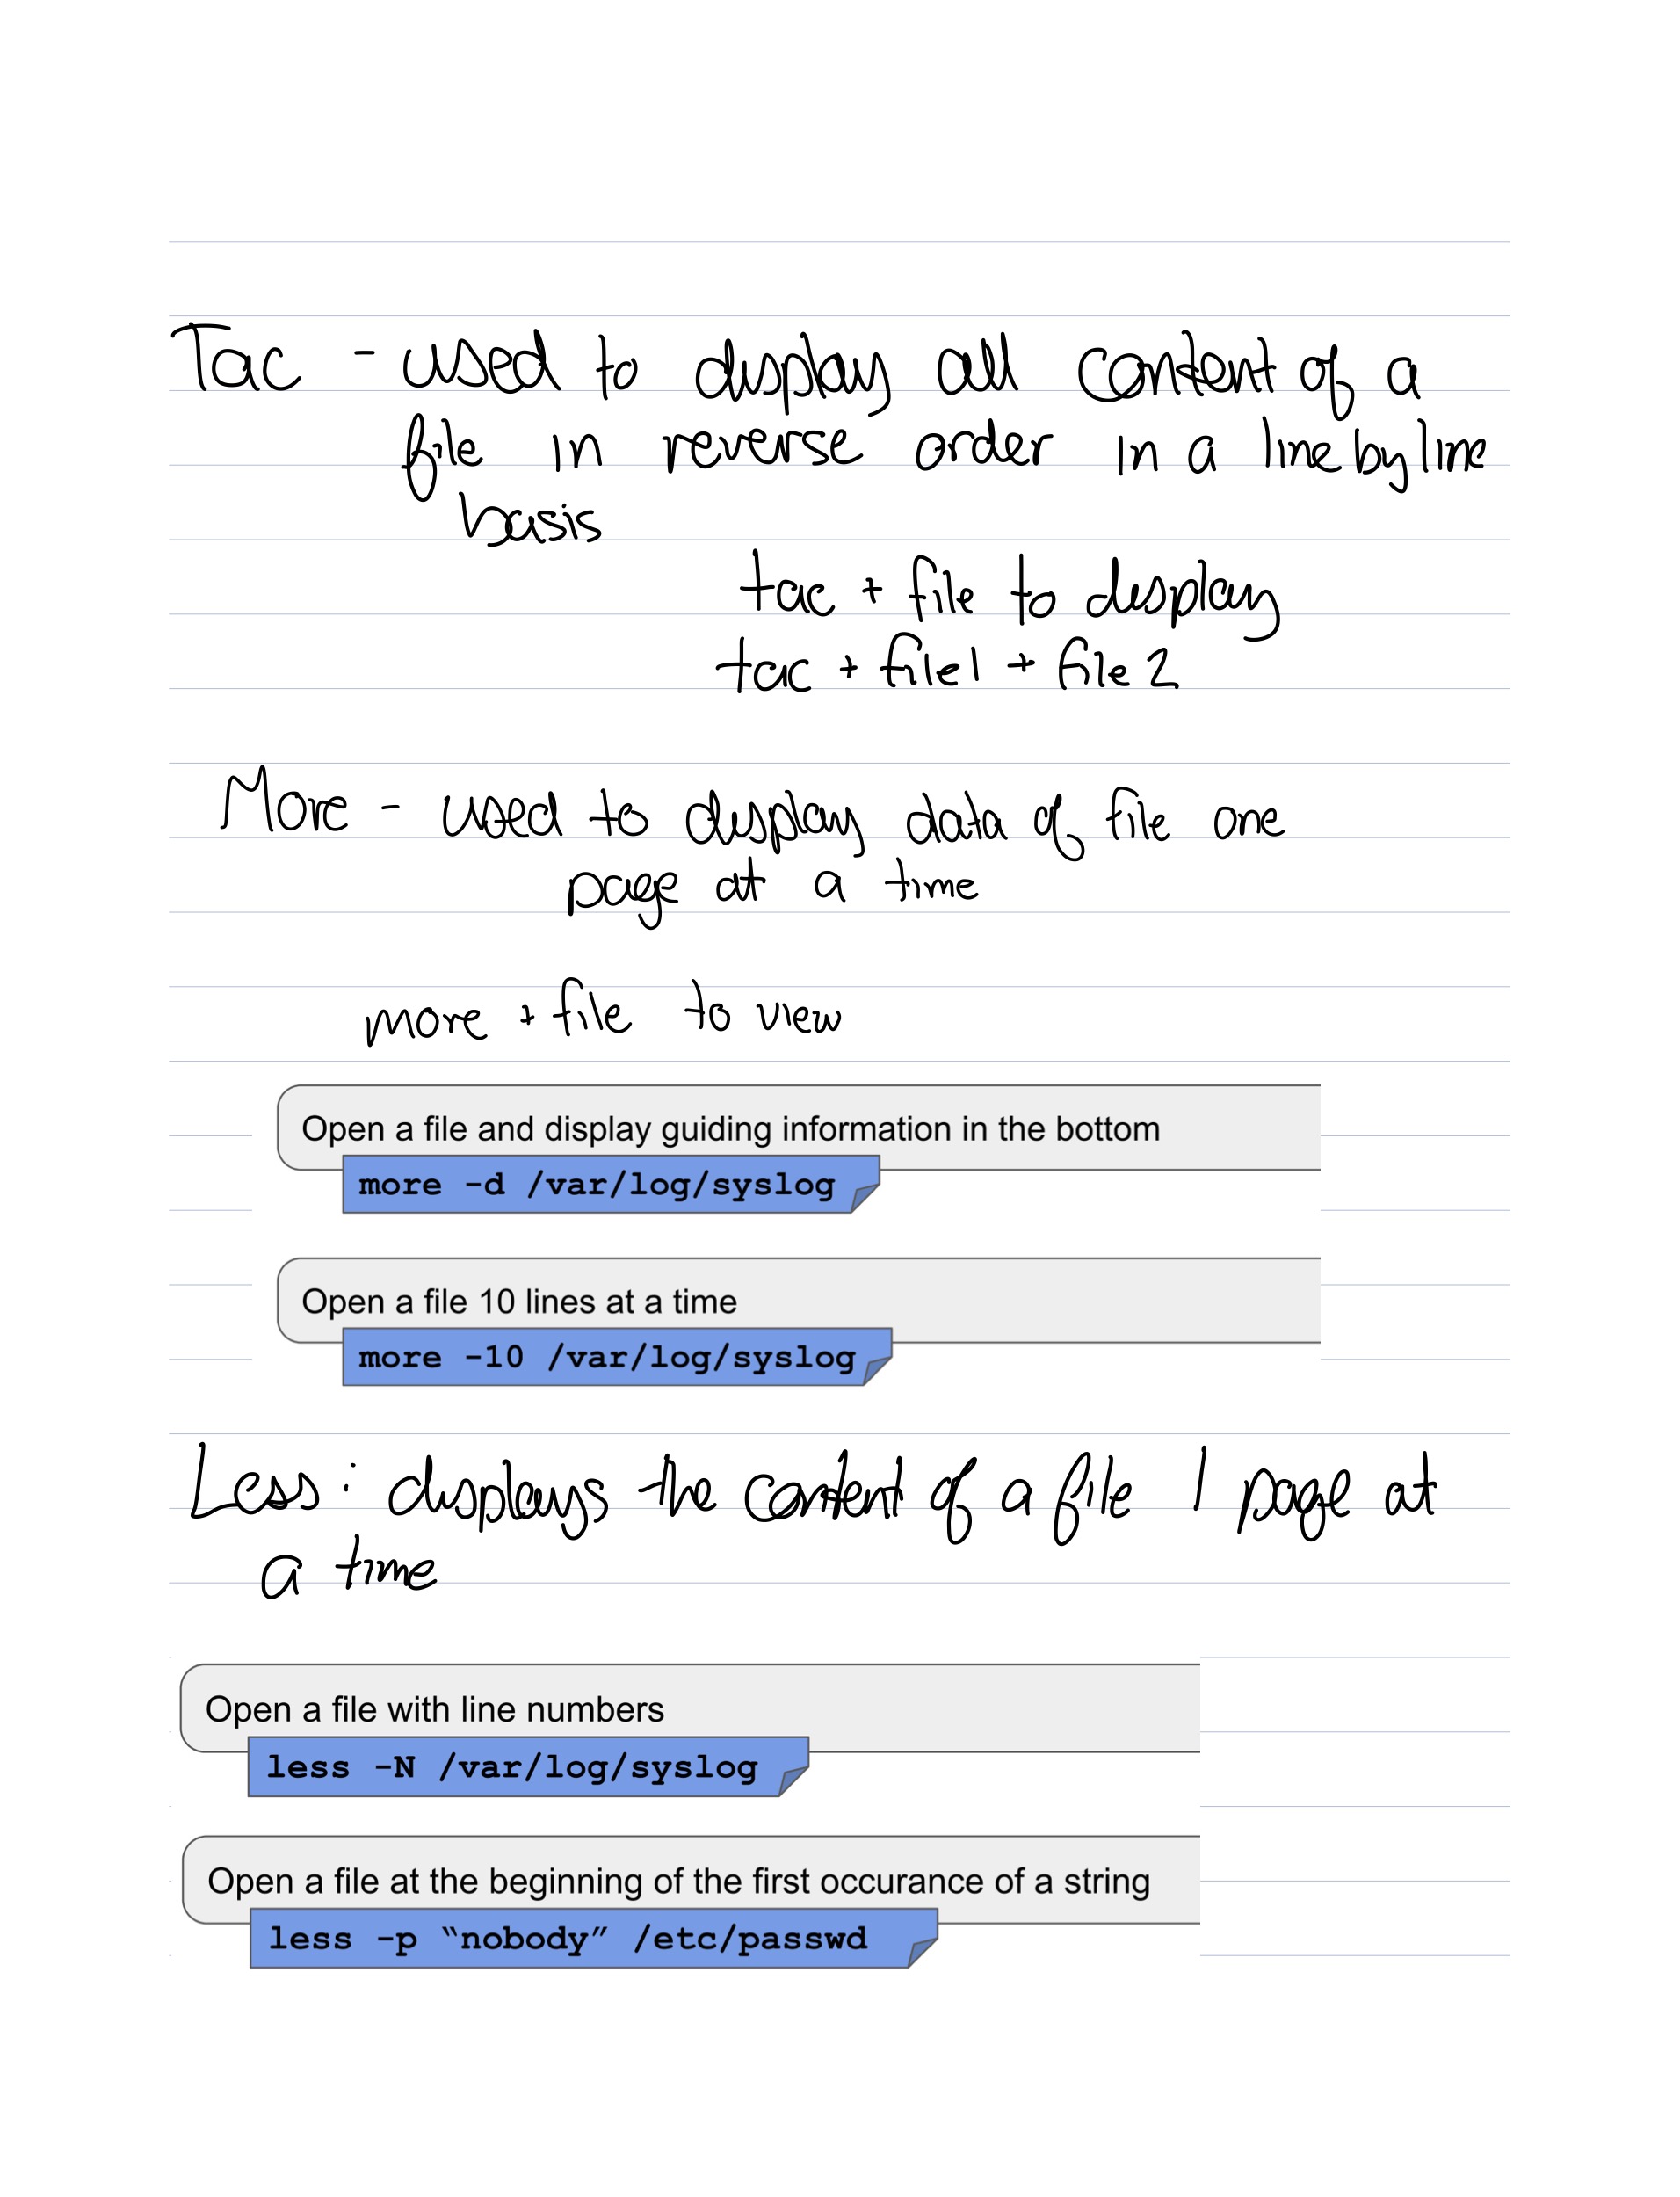 Tac - used to display all content of a
file in reverse order in a line by line
basis
tac + file to display
tac + file1 + file 2
More - used to display data of file one
page at a time
more + file to view
Open a file and display guiding information in the bottom
more -d /var/log/syslog
Open a file 10 lines at a time
more -10 /var/log/syslog
Less : displays the content of a file 1 page at
a time
Open a file with line numbers
less -N /var/log/syslog
Open a file at the beginning of the first occurance of a string
less -p “nobody” /etc/passwd